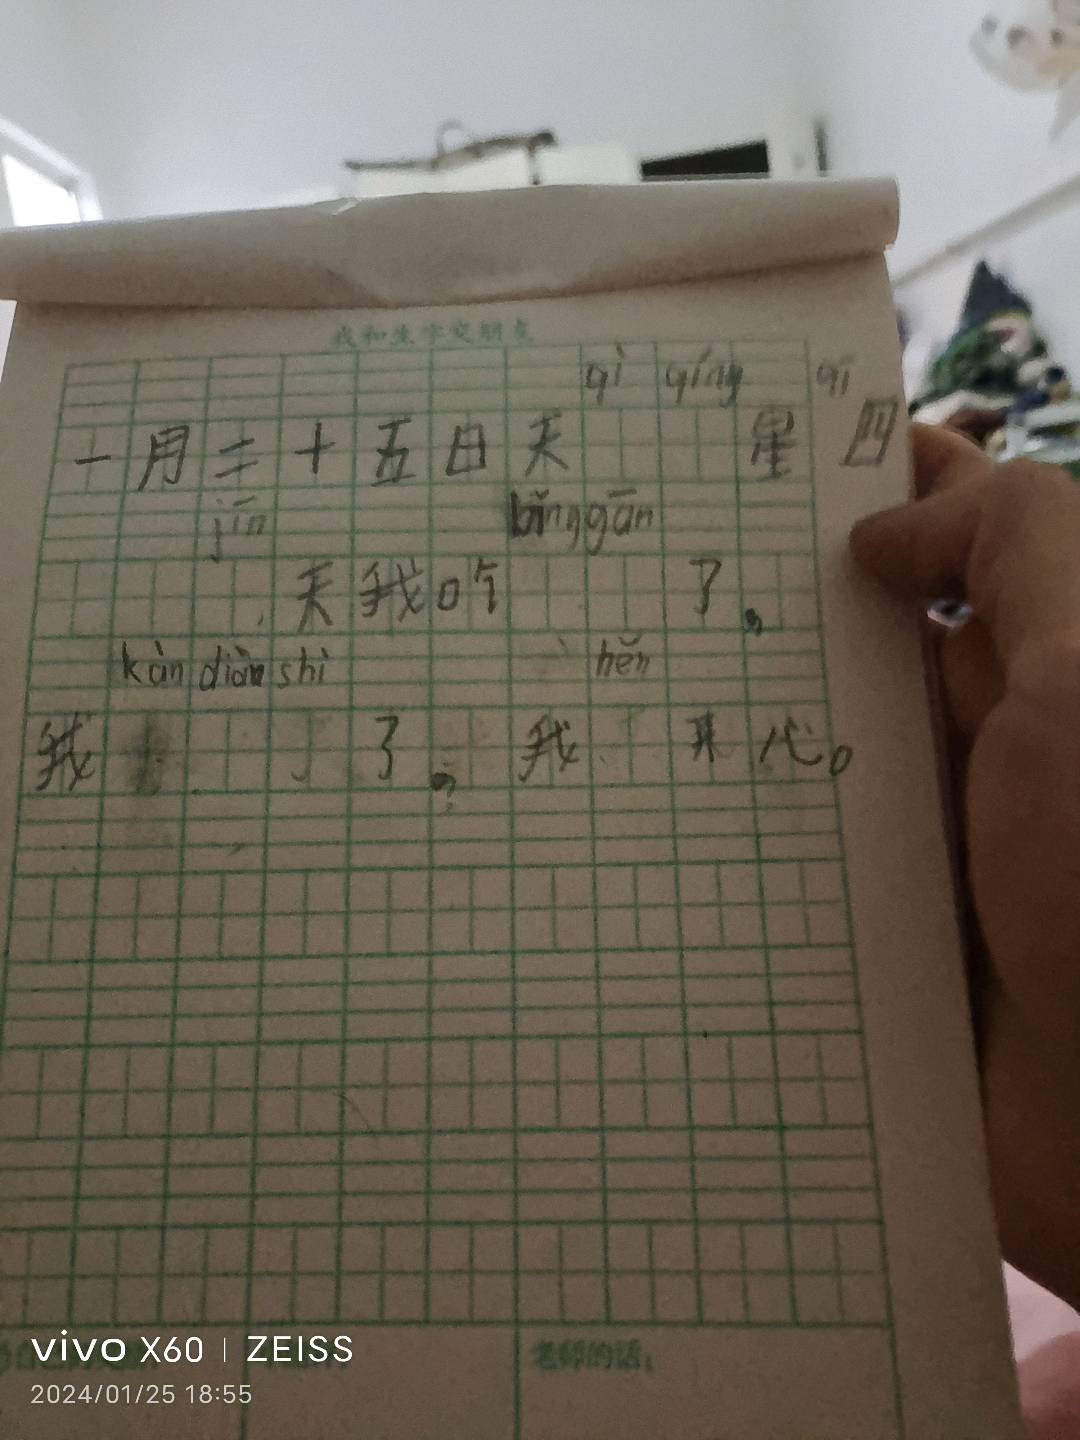 我和生字交朋友
qì qíng qī
一月二十五日天星四
jīn bǐng gān
天我吃了，
kàn diàn shì hěn
我了，我开心。
老师的话：
vivo X60 | ZEISS
2024/01/25 18:55